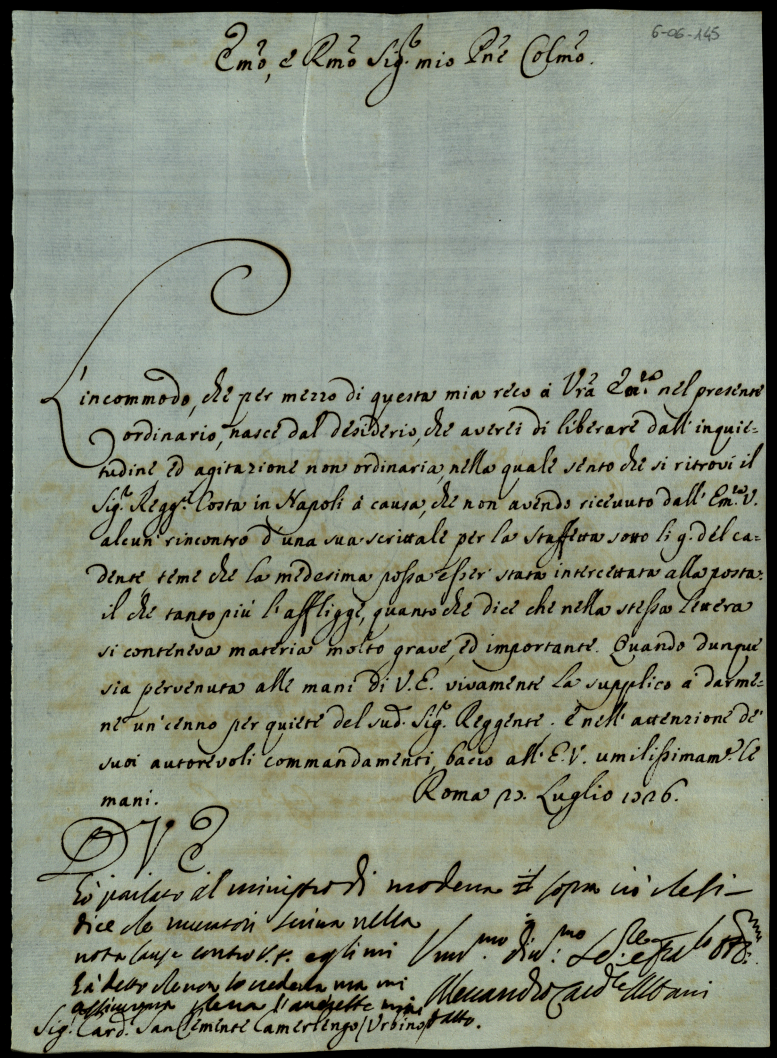 6-06-145
Emo, e Rmo Sigr mio Pne Colmo.
L'incommodo, che per mezzo di questa mia reco à Vrã Emza nel presente
ordinario, nasce dal desiderio, che averei di liberare dall'inquie=
tudine ed agitazione non ordinaria, nella quale sento che si ritrovi il
Sigr Reggte Costa in Napoli à causa, che non avendo ricevuto dall'Emza V.
alcun rincontro d'una sua scrittale per la staffetta sotto li 9. del ca=
dente teme che la medesima possa esser stata intercettata alla posta:
il che tanto più l'affligge, quanto che dice che nella stessa lettera
si conteneva materia molto grave, ed importante. Quando dunque
sia pervenuta alle mani di V.E. vivamente la supplico à darme=
ne un'cenno per quiete del sud. Sigr Reggente. E nell'attenzione de'
suoi autorevoli commandamenti, bacio all'E.V. umilissimamte le
mani. Roma 27. Luglio 1726.
D V E
Ho parlato al ministro di modena sopra ciò che si
dice che muratori scriva nella
nota causa contro V.E. egli mi
hà detto che non lo credeva ma mi
che l'avrebbe
Alessandro Cardle Albani
Sigr Card. San Clemente Camerlengo / Urbino fatto.